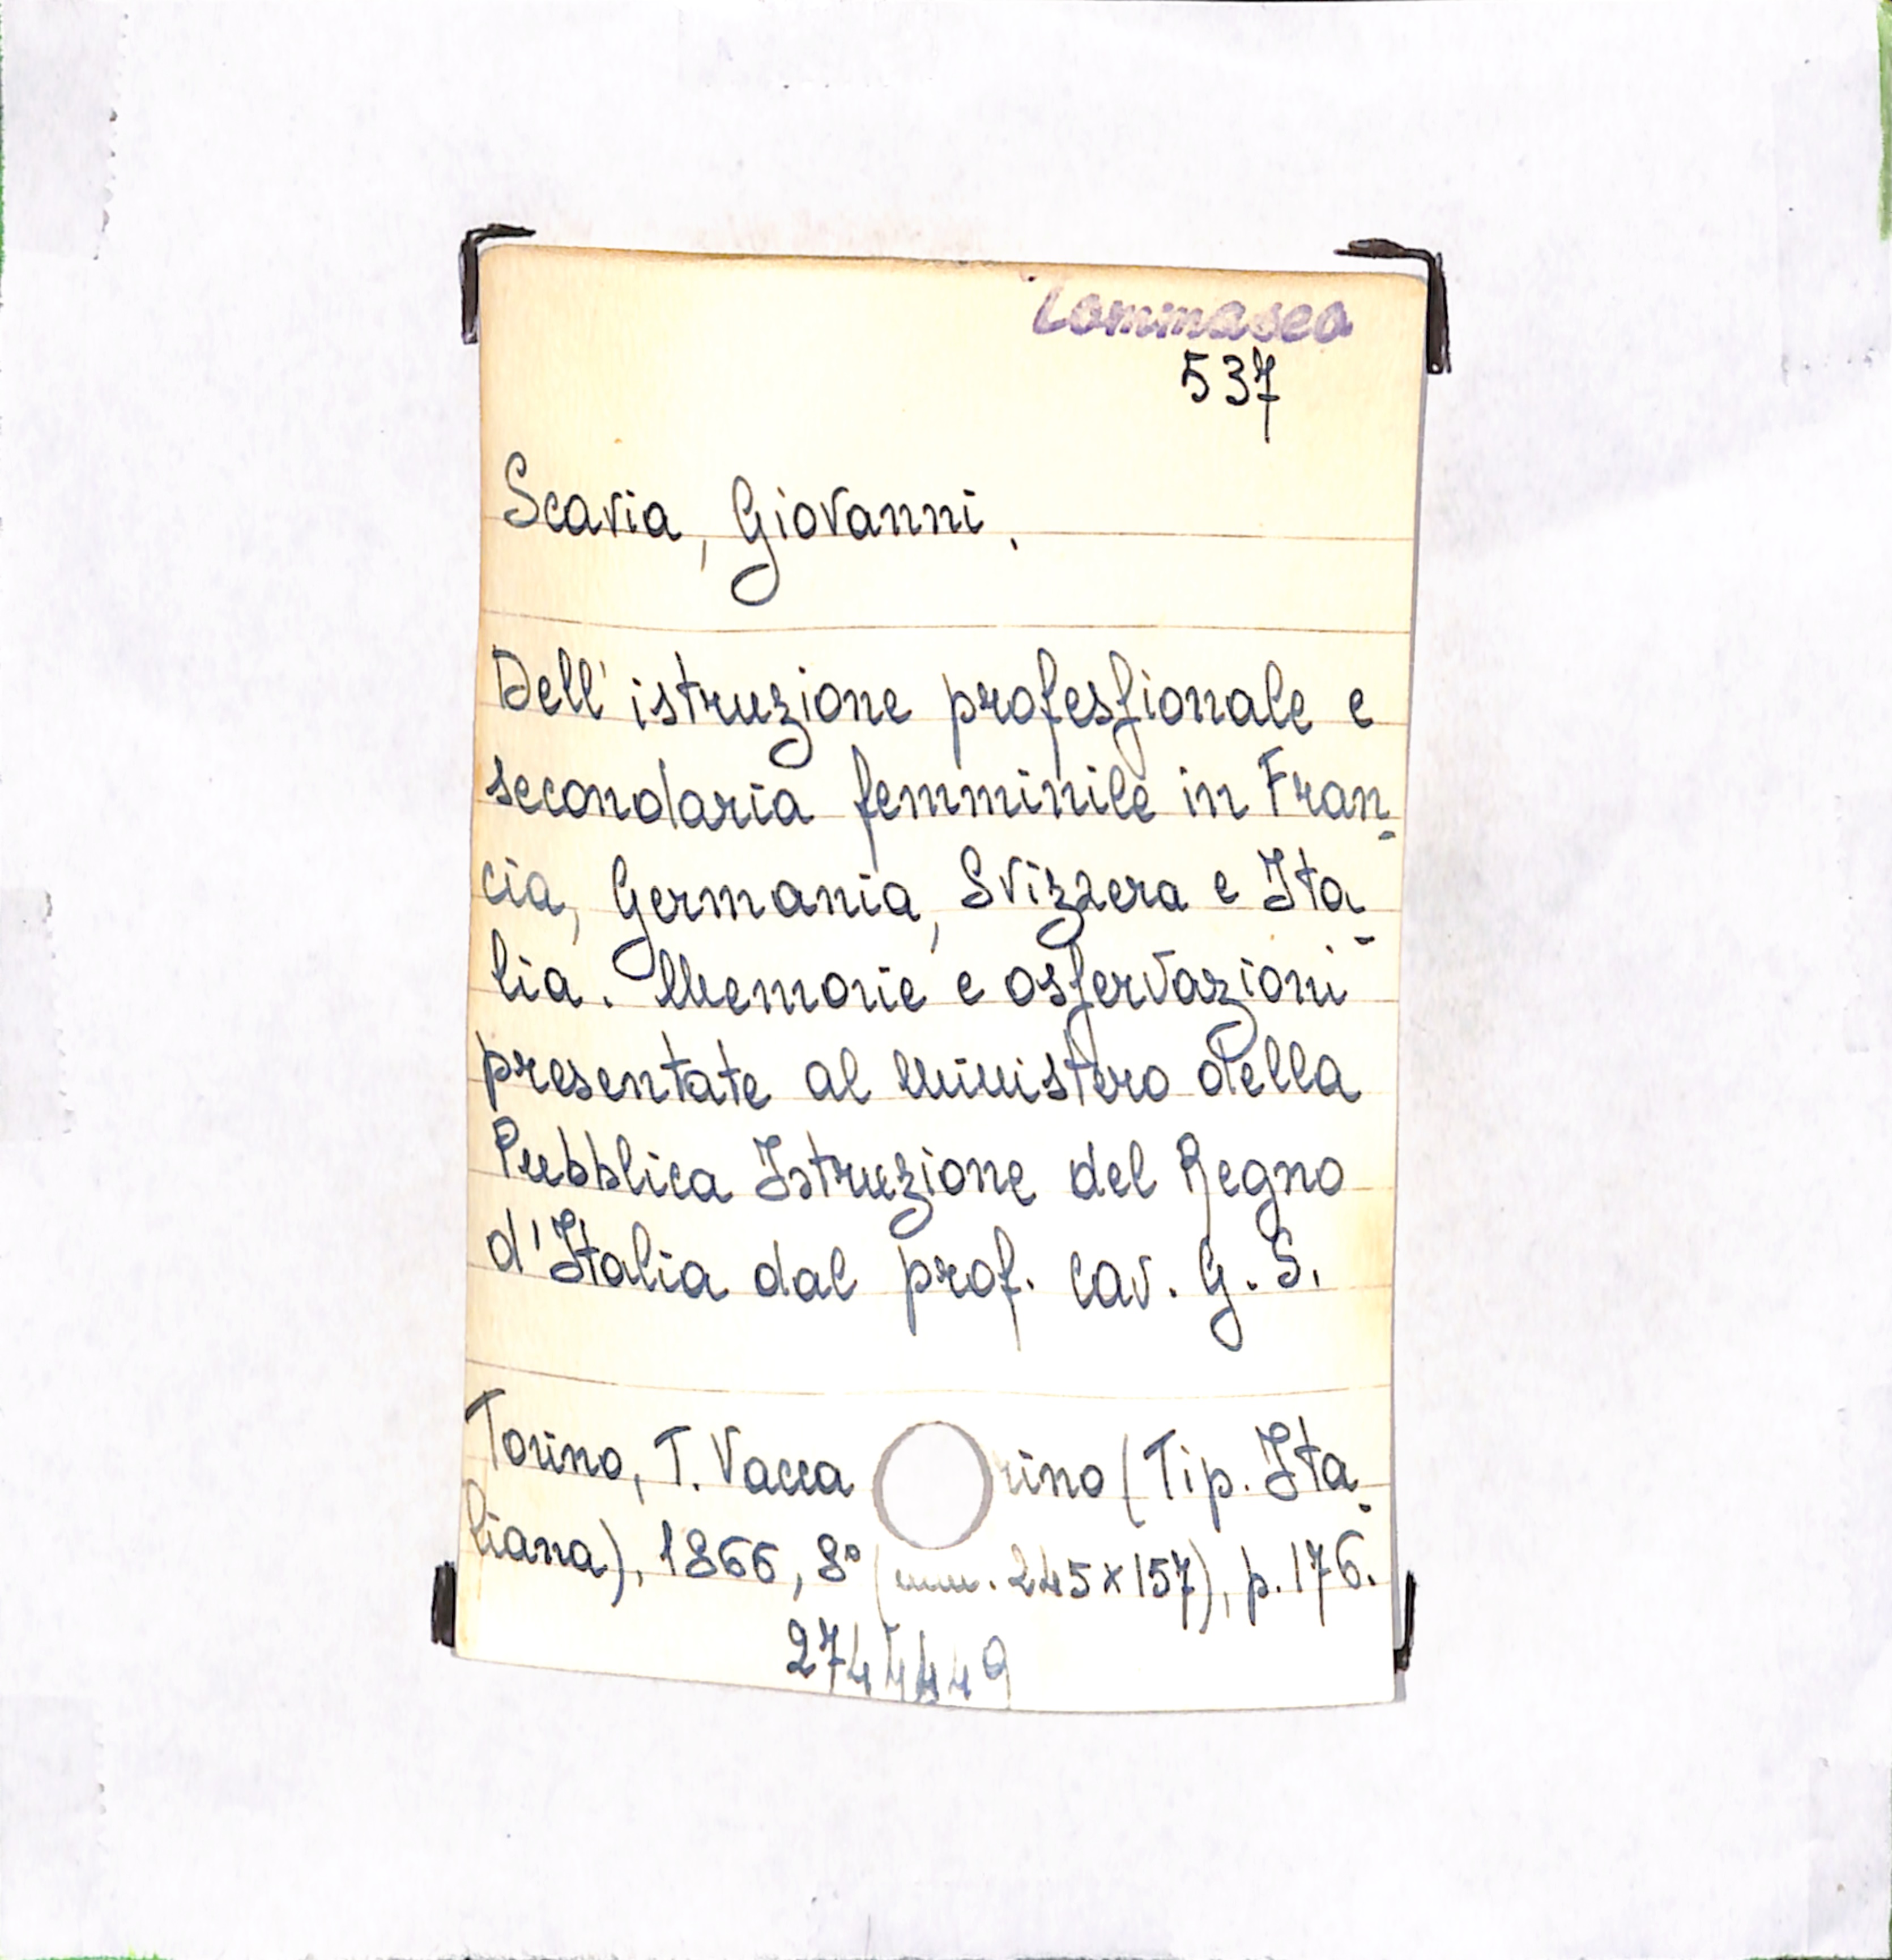 Tommaseo
537
Scavia, Giovanni.
Dell'istruzione professionale e
secondaria femminile in Fran-
cia, Germania, Svizzera e Ita-
lia. Memorie e osservazioni
presentate al Ministero della
Pubblica Istruzione del Regno
d'Italia dal prof. cav. G. S.
Torino, T. Vacca rino (Tip. Ita-
liana), 1866, 8° (mm. 245x157), p. 176.